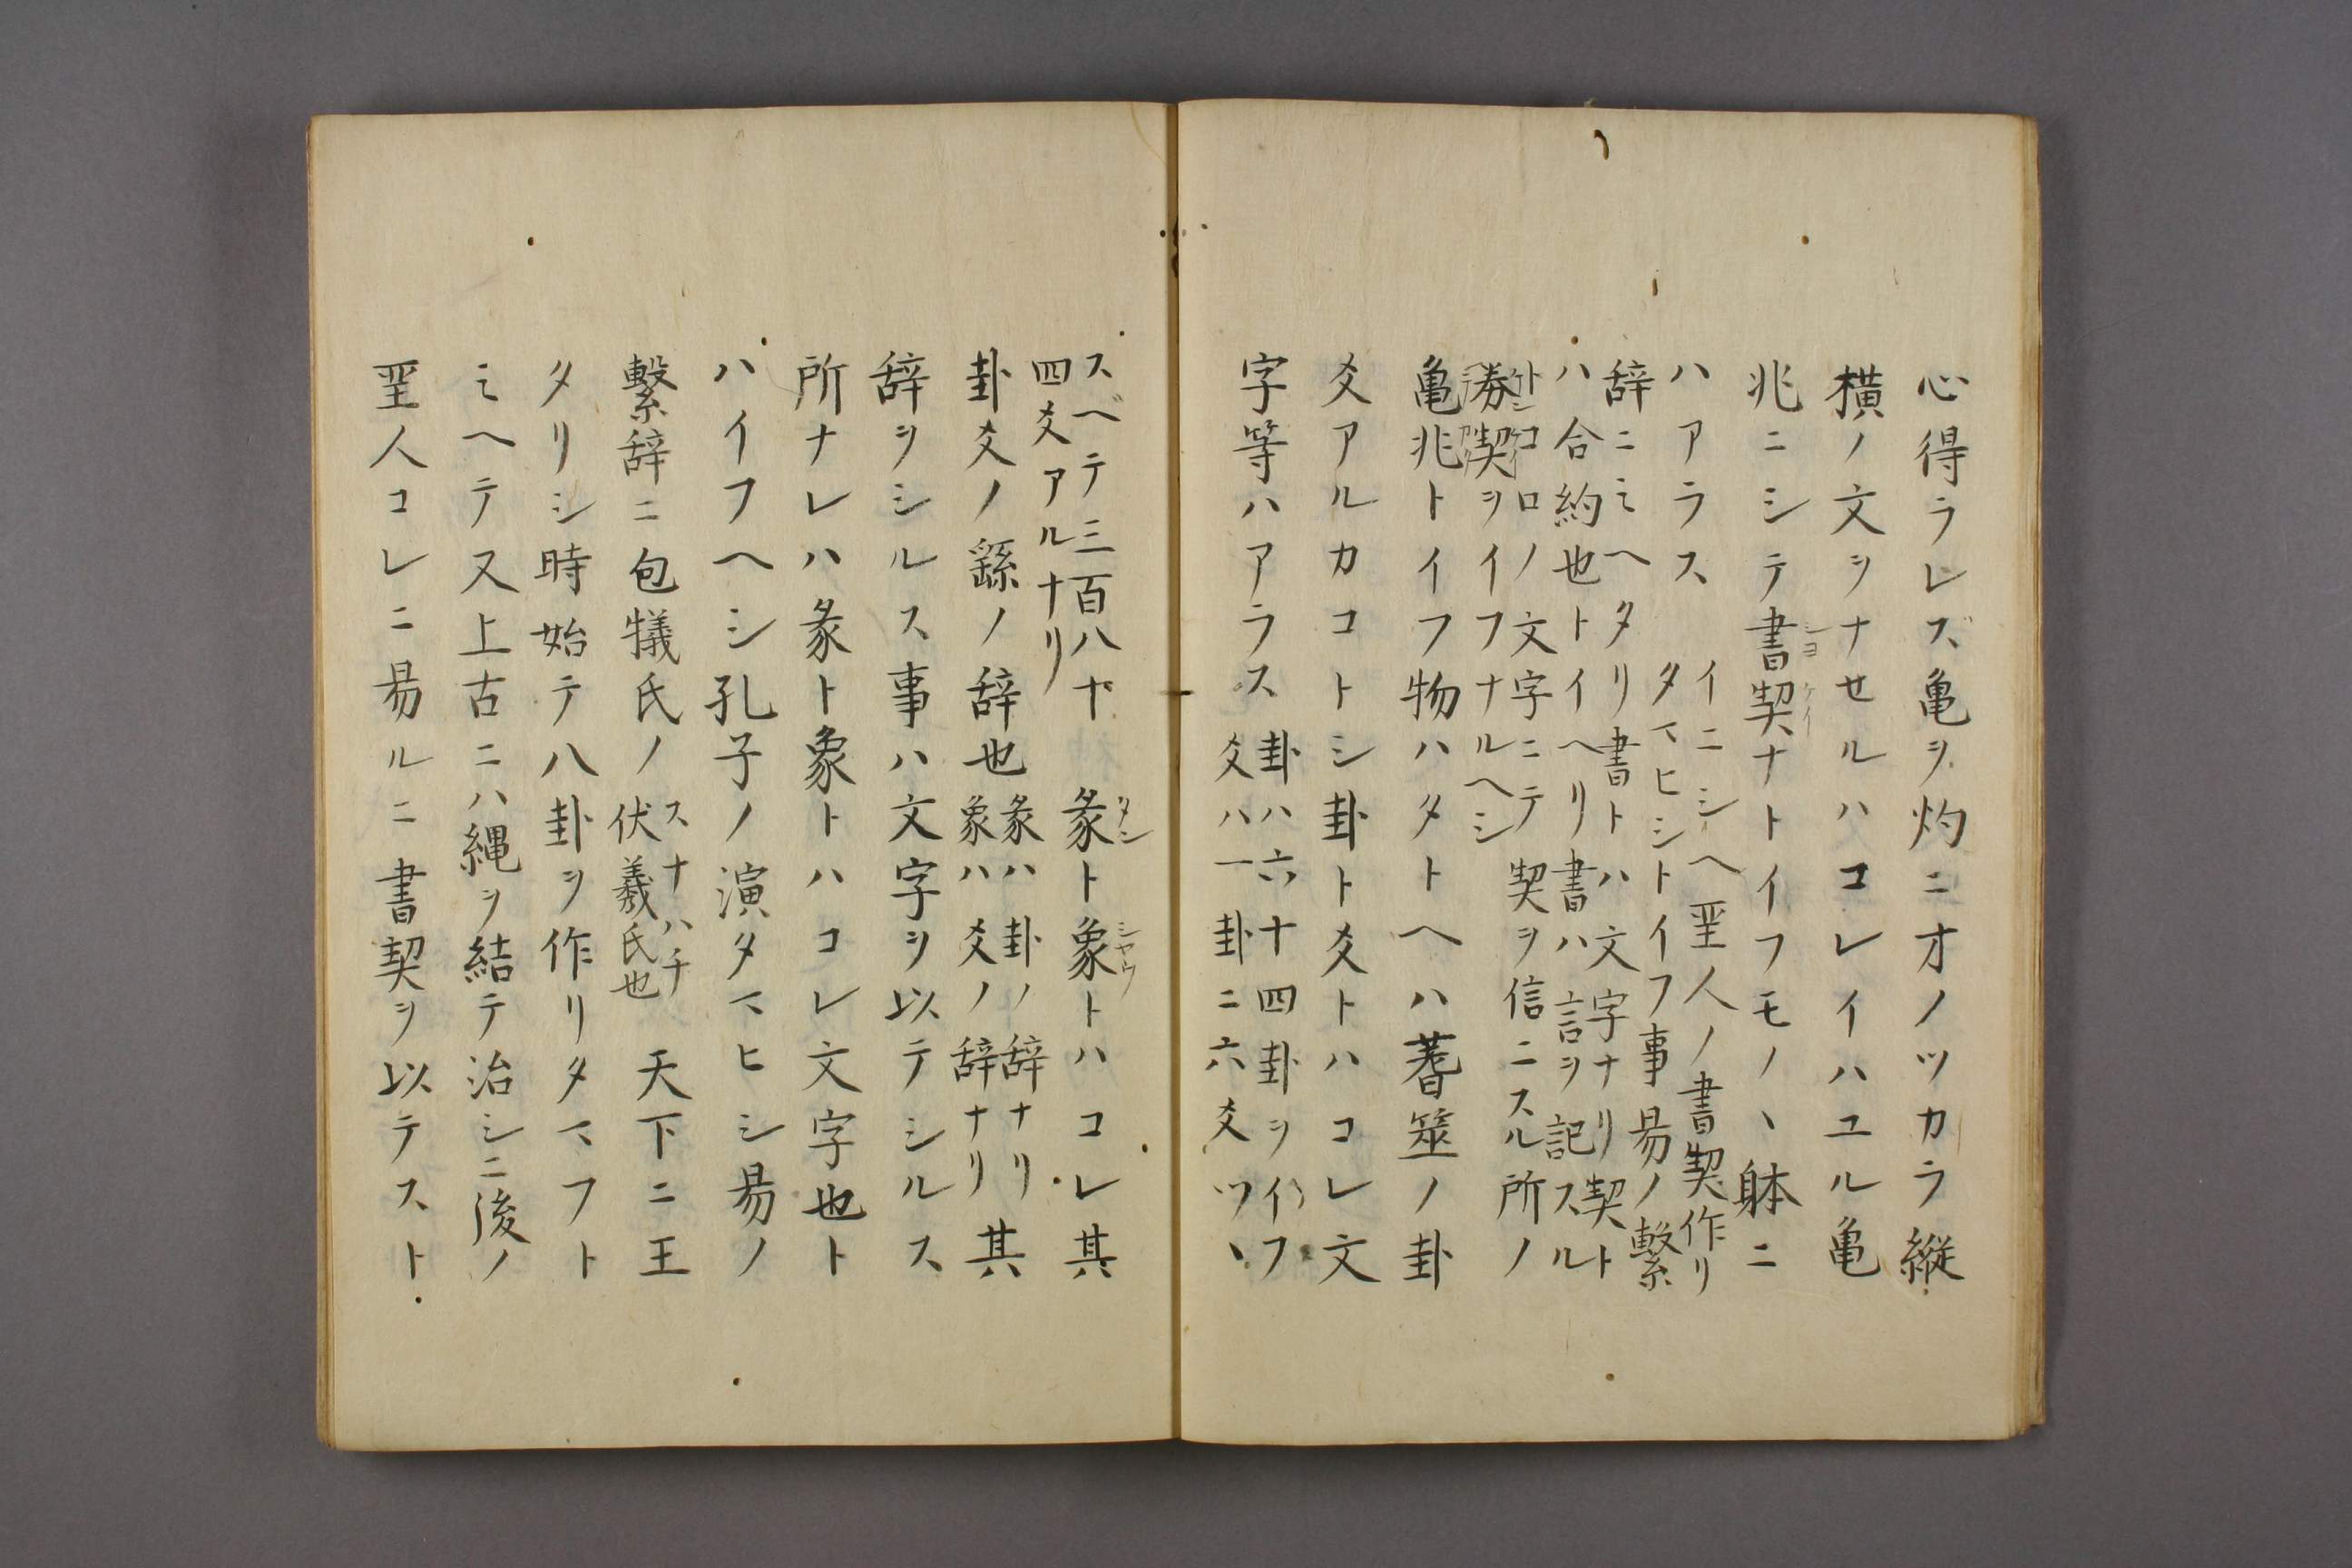 心得ラレズ亀ヲ灼ニオノツカラ縦
横ノ文ヲナセルハコレイハユル亀
兆ニシテ書契ナトイフモノヽ躰ニ
シヨケイ
ハアラス
イニシヘ聖人ノ書契作リ
タマヒシトイフ事易ノ繋
辞ニミヘタリ書トハ文字ナリ契ト
ハ合約也トイヘリ書ハ言ヲ記スル
トコロノ文字ニテ契ヲ信ニスル所ノ
券契ヲイフナルヘシ
亀兆トイフ物ハタトヘハ蓍筮ノ卦
爻アルカコトシ卦ト爻トハコレ文
字等ハアラス
卦ハ六十四卦ヲイフ
爻ハ一卦ニ六爻ツヽ
スベテ三百八十
四爻アルナリ
彖ト象トハコレ其
タンシヤウ
卦爻ノ繇ノ辞也
彖ハ卦ノ辞ナリ
象ハ爻ノ辞ナリ
其
辞ヲシルス事ハ文字ヲ以テシルス
所ナレハ彖ト象トハコレ文字也ト
ハイフヘシ孔子ノ演タマヒシ易ノ
繋辞ニ包犠氏ノ
スナハチ
伏羲氏也
天下ニ王
タリシ時始テ八卦ヲ作リタマフト
ミヘテ又上古ニハ縄ヲ結テ治シニ後ノ
聖人コレニ易ルニ書契ヲ以テスト